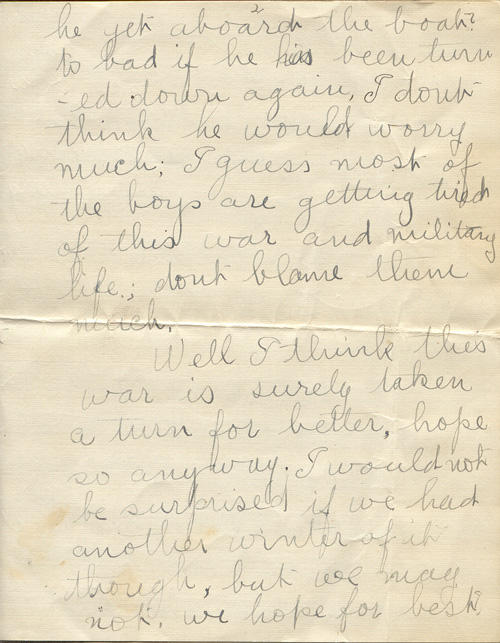 he get aboard the boat?
to bad if he has been turn
-ed down again, I dont
think he would worry
much; I guess most of
the boys are getting tired
of this war and military
life.; dont blame them
much.
Well I think this
war is surely taken
a turn for better, hope
so anyway. I would not
be surprised if we had
another winter of it
though, but we may
not. we hope for best.